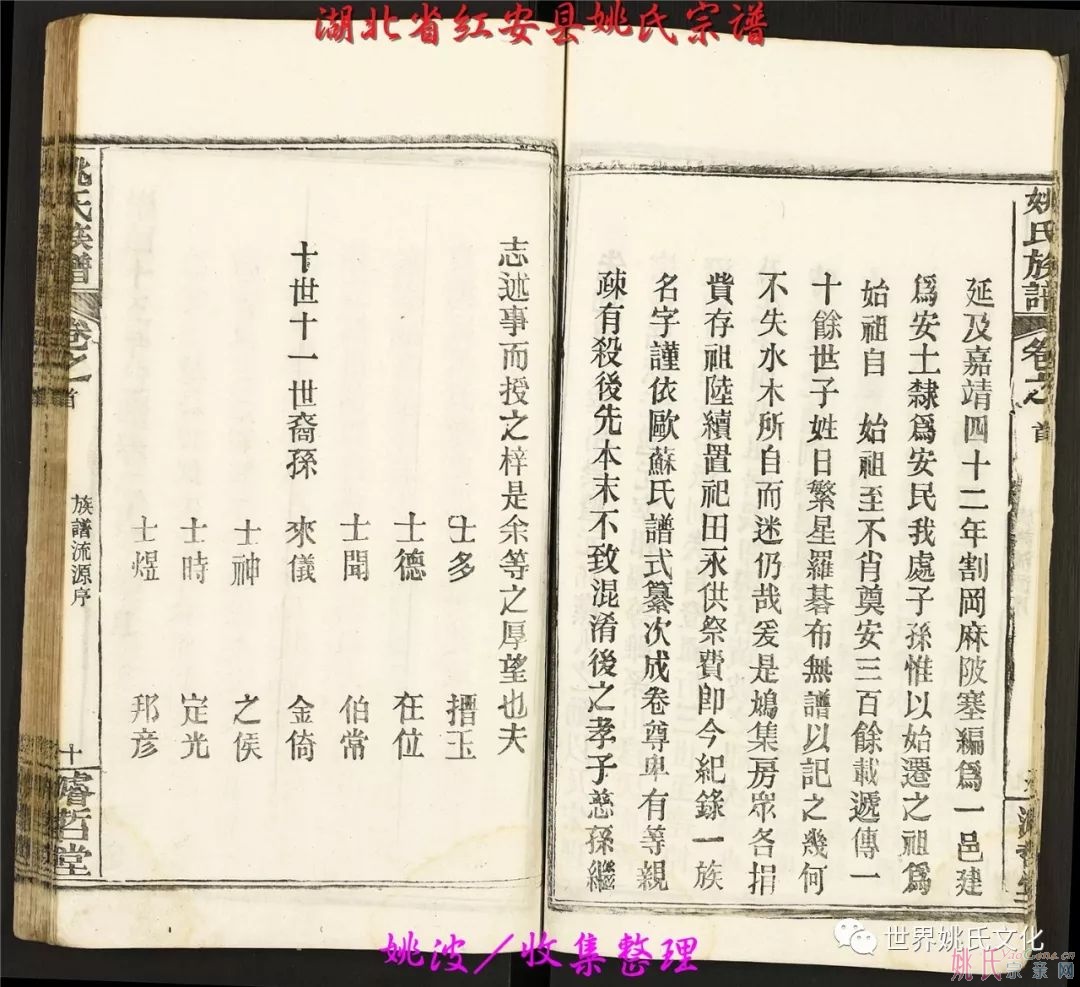 湖北省红安县姚氏宗谱
姚氏族譜
卷之首
延及嘉靖四十二年割岡麻陂塞編爲一邑建
爲安土隸爲安民我處子孫惟以始遷之祖爲
始祖自　始祖至不肖奠安三百餘載遞傳一
十餘世子姓日繁星羅碁布無譜以記之幾何
不失水木所自而迷仍哉爰是鳩集房眾各捐
貲存祖陸續置祀田永供祭費卽今紀錄一族
名字謹依歐蘇氏譜式纂次成卷尊卑有等親
疎有殺後先本末不致混淆後之孝子慈孫繼
志述事而授之梓是余等之厚望也夫
士多　搢玉
士德　在位
士聞　伯常
十世十一世裔孫　來儀　金倚
士神　之侯
士時　定光
士煜　邦彦
姚氏族譜
卷之首
族譜流源序
十
濬哲堂
姚波／收集整理
世界姚氏文化
姚氏宗亲网